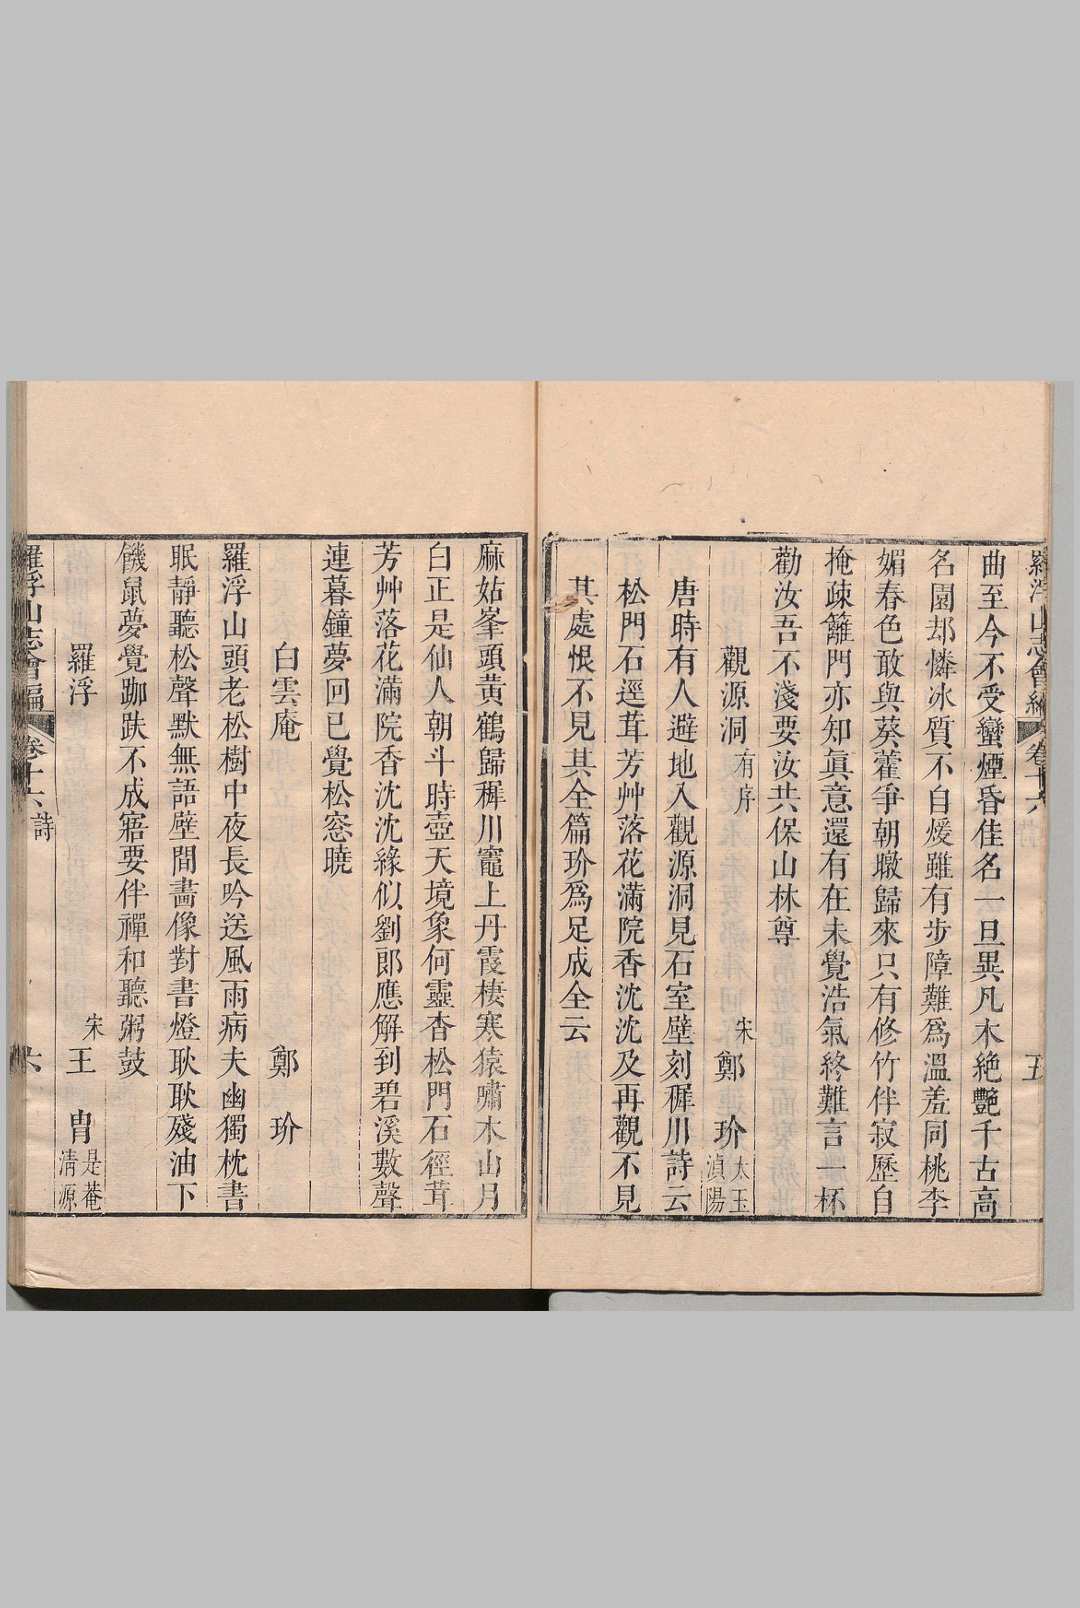 羅浮山志會編 卷十六 詩 五
曲至今不受蠻煙昏佳名一旦異凡木絶艷千古高
名園却憐冰質不自煖雖有步障難爲溫羞同桃李
媚春色敢與葵藿爭朝暾歸來只有修竹伴寂歷自
掩疎籬門亦知眞意還有在未覺浩氣終難言一杯
勸汝吾不淺要汝共保山林尊
觀源洞有序 宋 鄭玠太玉湞陽
唐時有人避地入觀源洞見石室壁刻穉川詩云
松門石逕茸芳艸落花滿院香沈沈及再觀不見
其處恨不見其全篇玠爲足成全云
麻姑峯頭黃鶴歸穉川竈上丹霞棲寒猿嘯木山月
白正是仙人朝斗時壺天境象何靈杳松門石徑茸
芳艸落花滿院香沈沈緣似劉郎應解到碧溪數聲
連暮鐘夢回已覺松窓曉
白雲庵 鄭玠
羅浮山頭老松樹中夜長吟送風雨病夫幽獨枕書
眠靜聽松聲默無語壁間畵像對書燈耿耿殘油下
饑鼠夢覺跏趺不成寤要伴禪和聽粥鼓
羅浮 宋 王胄是菴清源
羅浮山志會編 卷十六 詩 六